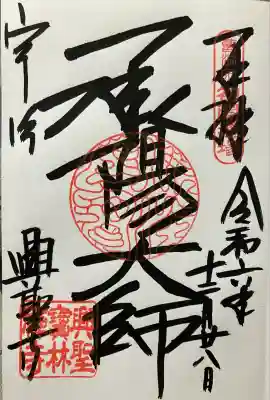 奉拝
令和六年
十二月廿八日
承陽大師
宇治
興聖寺
興聖
寶林
禅寺